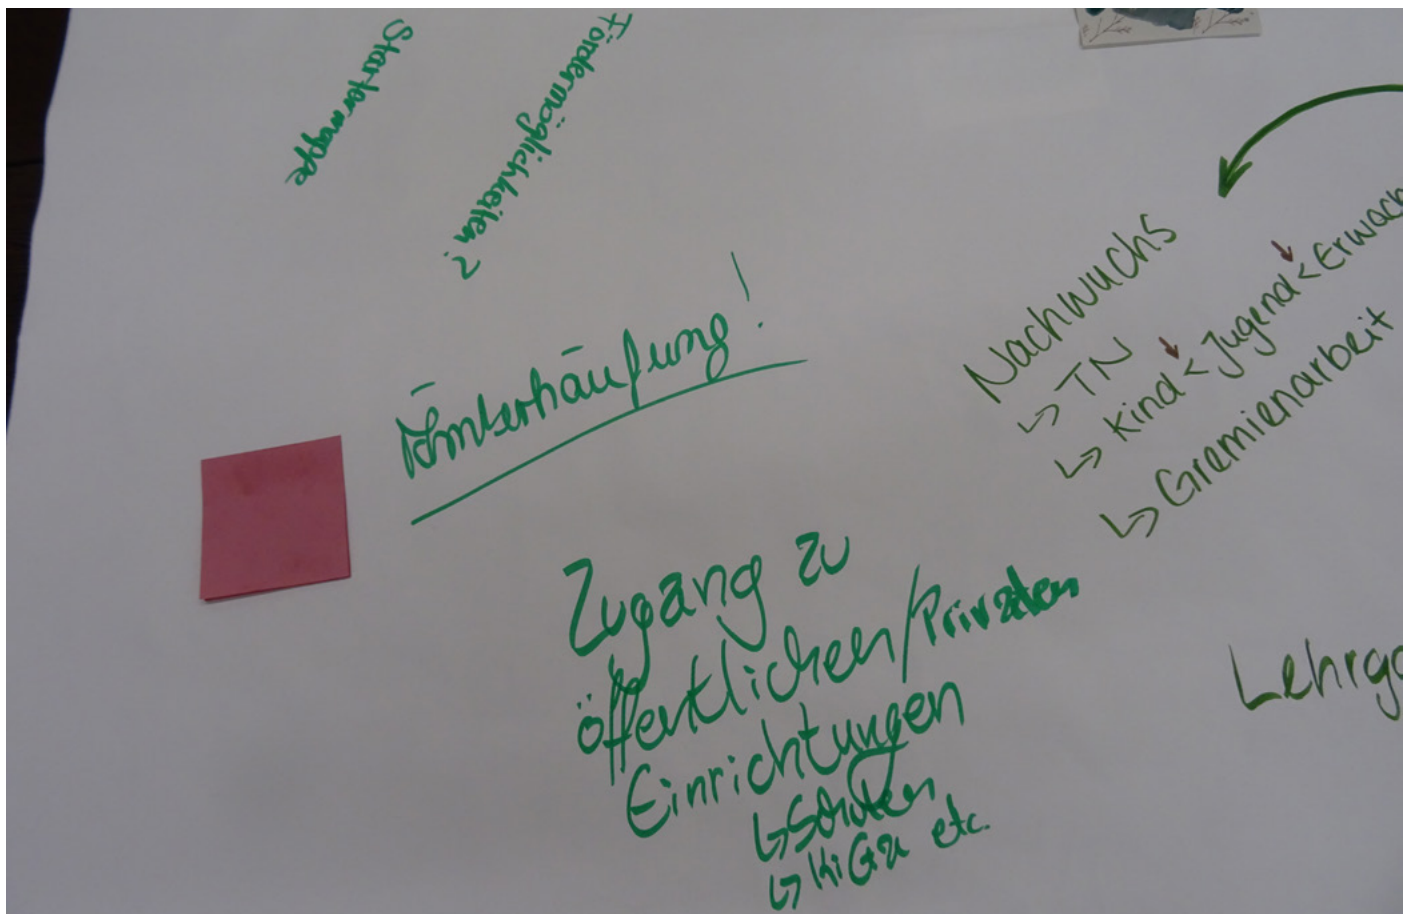 Startermappe
Fördermöglichkeiten?
Ämterhäufung!
Nachwuchs
↳ TN
↳ Kind < Jugend < Erwach
↳ Gremienarbeit
Zugang zu
öffentlichen/Privaten
Einrichtungen
↳ Schulen
↳ KiGa etc.
Lehrga